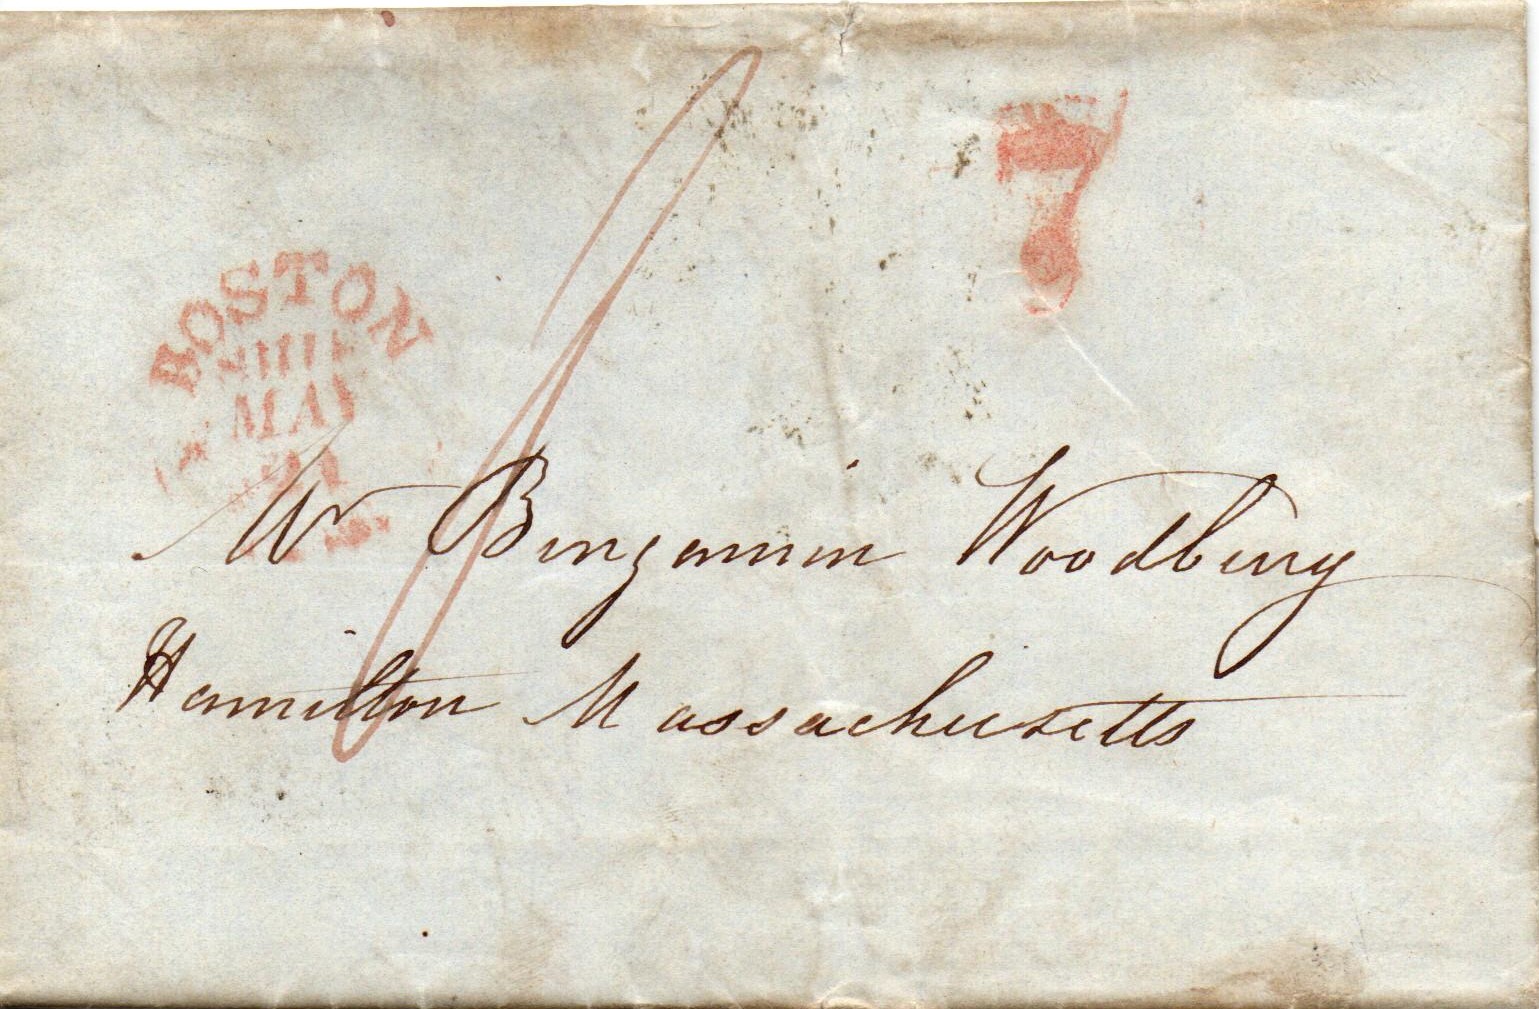 7
BOSTON
SHIP
MAY
Mr Benjamin Woodbury
Hamilton Massachusetts